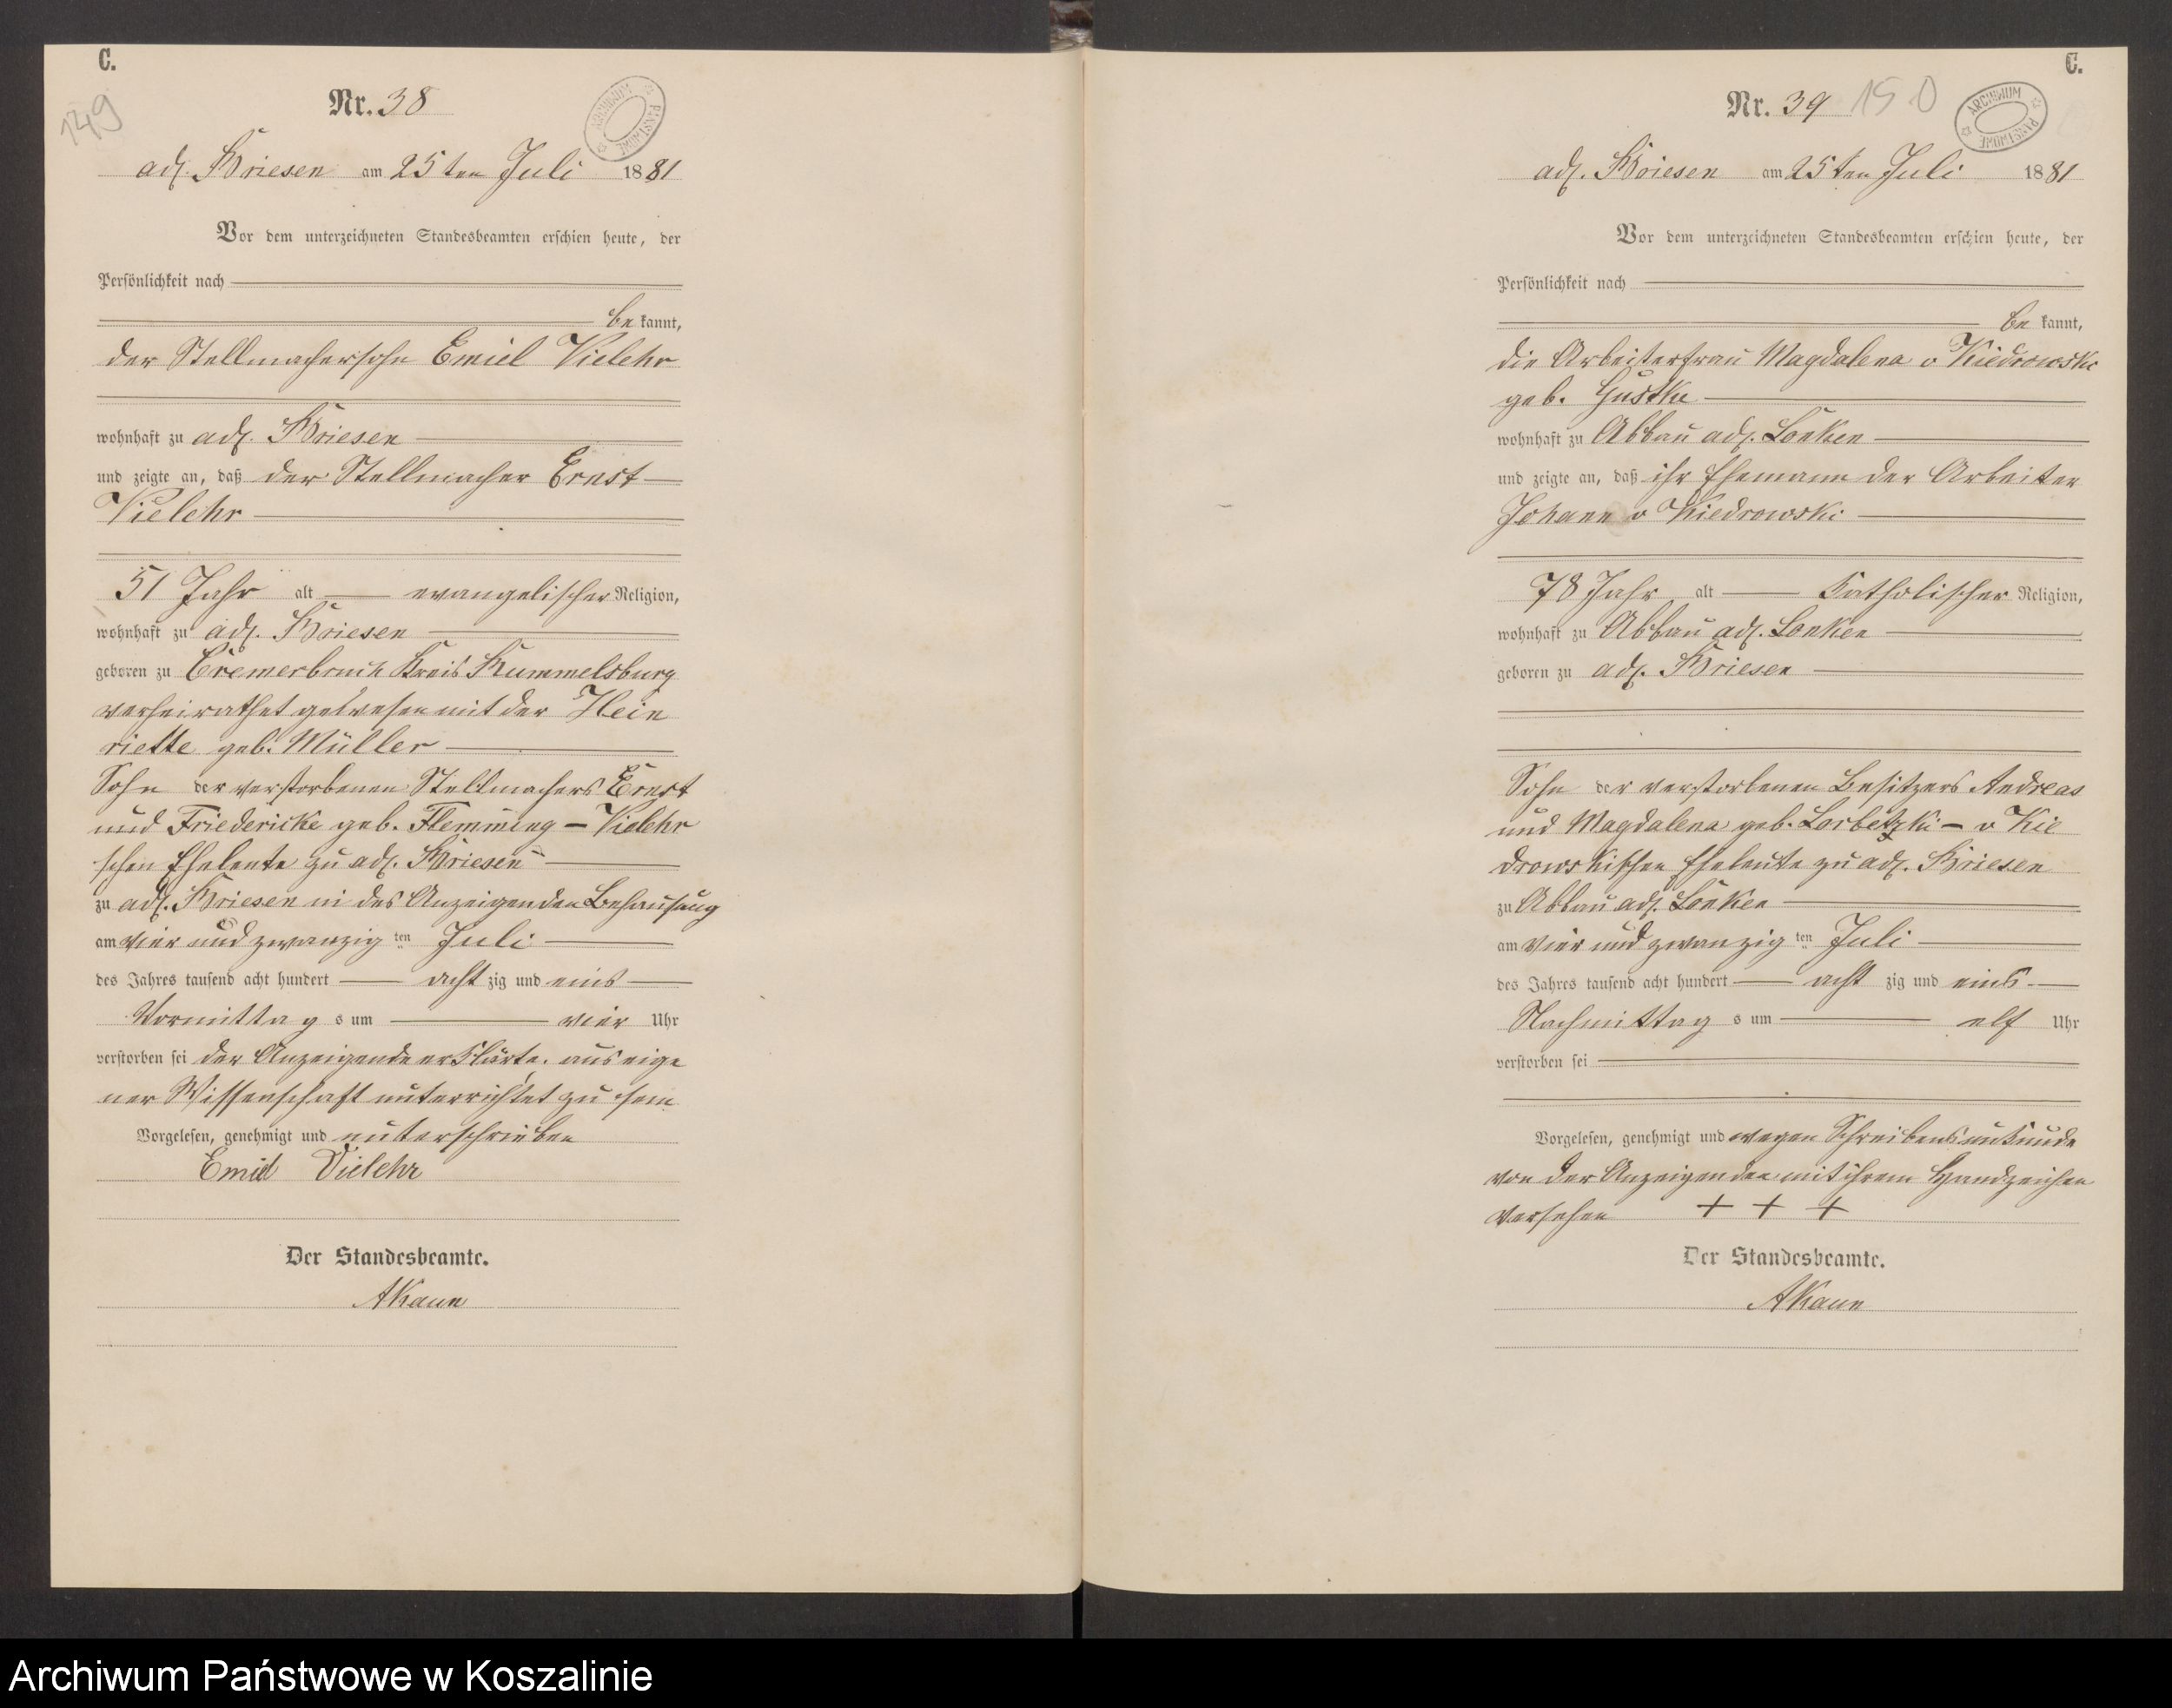 C.
149
Nr. 38
ARCHIWUM PAŃSTWOWE
adl. Briesen am 25ten Juli 1881
Vor dem unterzeichneten Standesbeamten erschien heute, der
Persönlichkeit nach
bekannt,
der Stellmachersohn Emiel Vielehr
wohnhaft zu adl. Briesen
und zeigte an, daß der Stellmacher Ernst
Vielehr
51 Jahr alt evangelischer Religion,
wohnhaft zu adl. Briesen
geboren zu Cremerbruch Kreis Rummelsburg
verheirathet gewesen mit der Hein
riette geb. Müller
Sohn der verstorbenen Stellmachers Ernst
und Friedericke geb. Flemming - Vielehr
schen Eheleute zu adl. Briesen
zu adl. Briesen in des Anzeigenden Behausung
am vier und zwanzig ten Juli
des Jahres tausend acht hundert acht zig und eins
Vormittag s um vier Uhr
verstorben sei der Anzeigende erklärte. aus eige
ner Wissenschaft unterrichtet zu sein
Vorgelesen, genehmigt und unterschrieben
Emiel Vielehr
Der Standesbeamte.
AKaun
C.
Nr. 39 150
ARCHIWUM PAŃSTWOWE
adl. Briesen am 25ten Juli 1881
Vor dem unterzeichneten Standesbeamten erschien heute, der
Persönlichkeit nach
be kannt,
die Arbeiterfrau Magdalena v Kiedrowski
geb. Gustke
wohnhaft zu Abbau adl. Lonken
und zeigte an, daß ihr Ehemann der Arbeiter
Johann v Kiedrowski
78 Jahr alt Katholischer Religion,
wohnhaft zu Abbau adl. Lonken
geboren zu adl. Briesen
Sohn der verstorbenen Besitzers Andreas
und Magdalena geb. Lorbetzki - v Kie
drowskischen Eheleute zu adl. Briesen
zu Abbau adl. Lonken
am vier und zwanzig ten Juli
des Jahres tausend acht hundert acht zig und eins
Nachmittag s um elf Uhr
verstorben sei
Vorgelesen, genehmigt und wegen Schreibensunkunde
von der Anzeigenden mit ihrem Handzeichen
versehen + + +
Der Standesbeamte.
AKaun
Archiwum Państwowe w Koszalinie